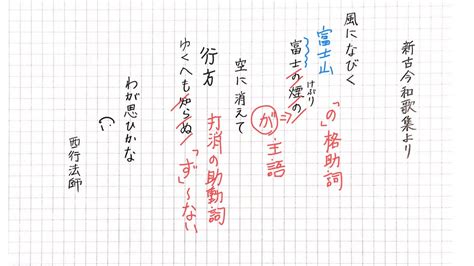 新古今和歌集より
風になびく
富士山
富士の煙の
けぶり
「の」格助詞
⇒が 主語
空に消えて
行方
ゆくへも知らぬ
打消の助動詞
「ず」~ない
わが思ひかな
西行法師